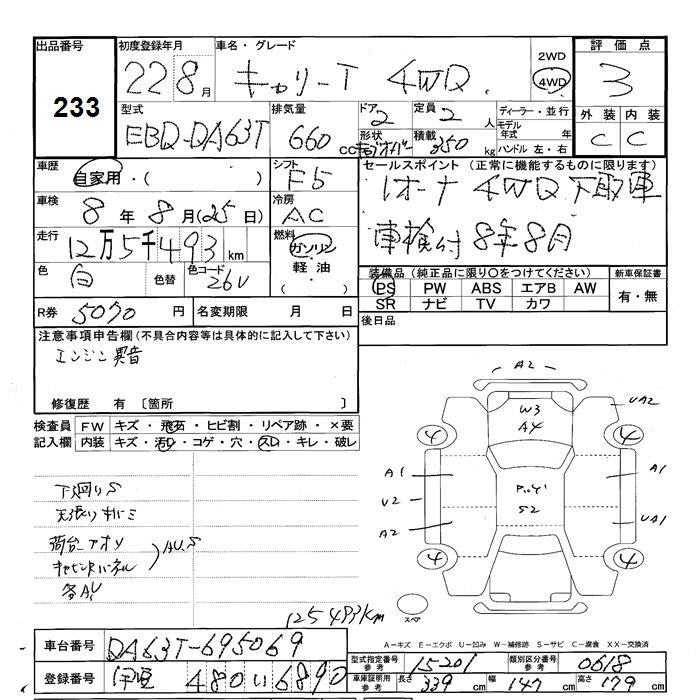 出品番号 初度登録年月 車名・グレード 2WD 評価点
233 22 8月 キャリーT 4WD 4WD 3
型式 排気量 ドア 定員 ディーラー・並行 外装 内装
EBD-DA63T 660 cc 2 2 人 モデル年式 年 C C
形状 積載 350 kg ハンドル 左・右
車歴 シフト セールスポイント (正常に機能するものに限ります)
自家用・( ) F5 1オーナ 4WD 下取車
車検 冷房 車検付 8年8月
8年 8月(25日) AC
走行 燃料
12万5千493km ガソリン・軽油
色 色替 色コード 装備品(純正品に限り○をつけてください) 新車保証書
白 26U PS PW ABS エアB AW 有・無
SR ナビ TV カワ
R券 5070 円 名変期限 月 日 後日品
注意事項申告欄(不具合内容等は具体的に記入して下さい)
エンジン異音
修復歴 有 〔箇所 〕
検査員 FW キズ・飛石・ヒビ割・リペア跡・×要
記入欄 内装 キズ・汚れ・コゲ・穴・スレ・キレ・破レ
A2
W3 UA2
A4
4 4
A1 A1
U2 S2
A2 UA1
4 4
スペア
下廻りS
天張りキバミ
荷台_アオリ
AU.S
各AU
125493km
A-キズ E-エクボ U-凹み W-補修跡 S-サビ C-腐食 XX-交換済
車台番号 DA63T-695069
登録番号 480 い 6890
型式指定番号 参考 15201 類別区分番号 参考 0618
車庫証明用 参考 長さ 339 cm 幅 147 cm 高さ 179 cm